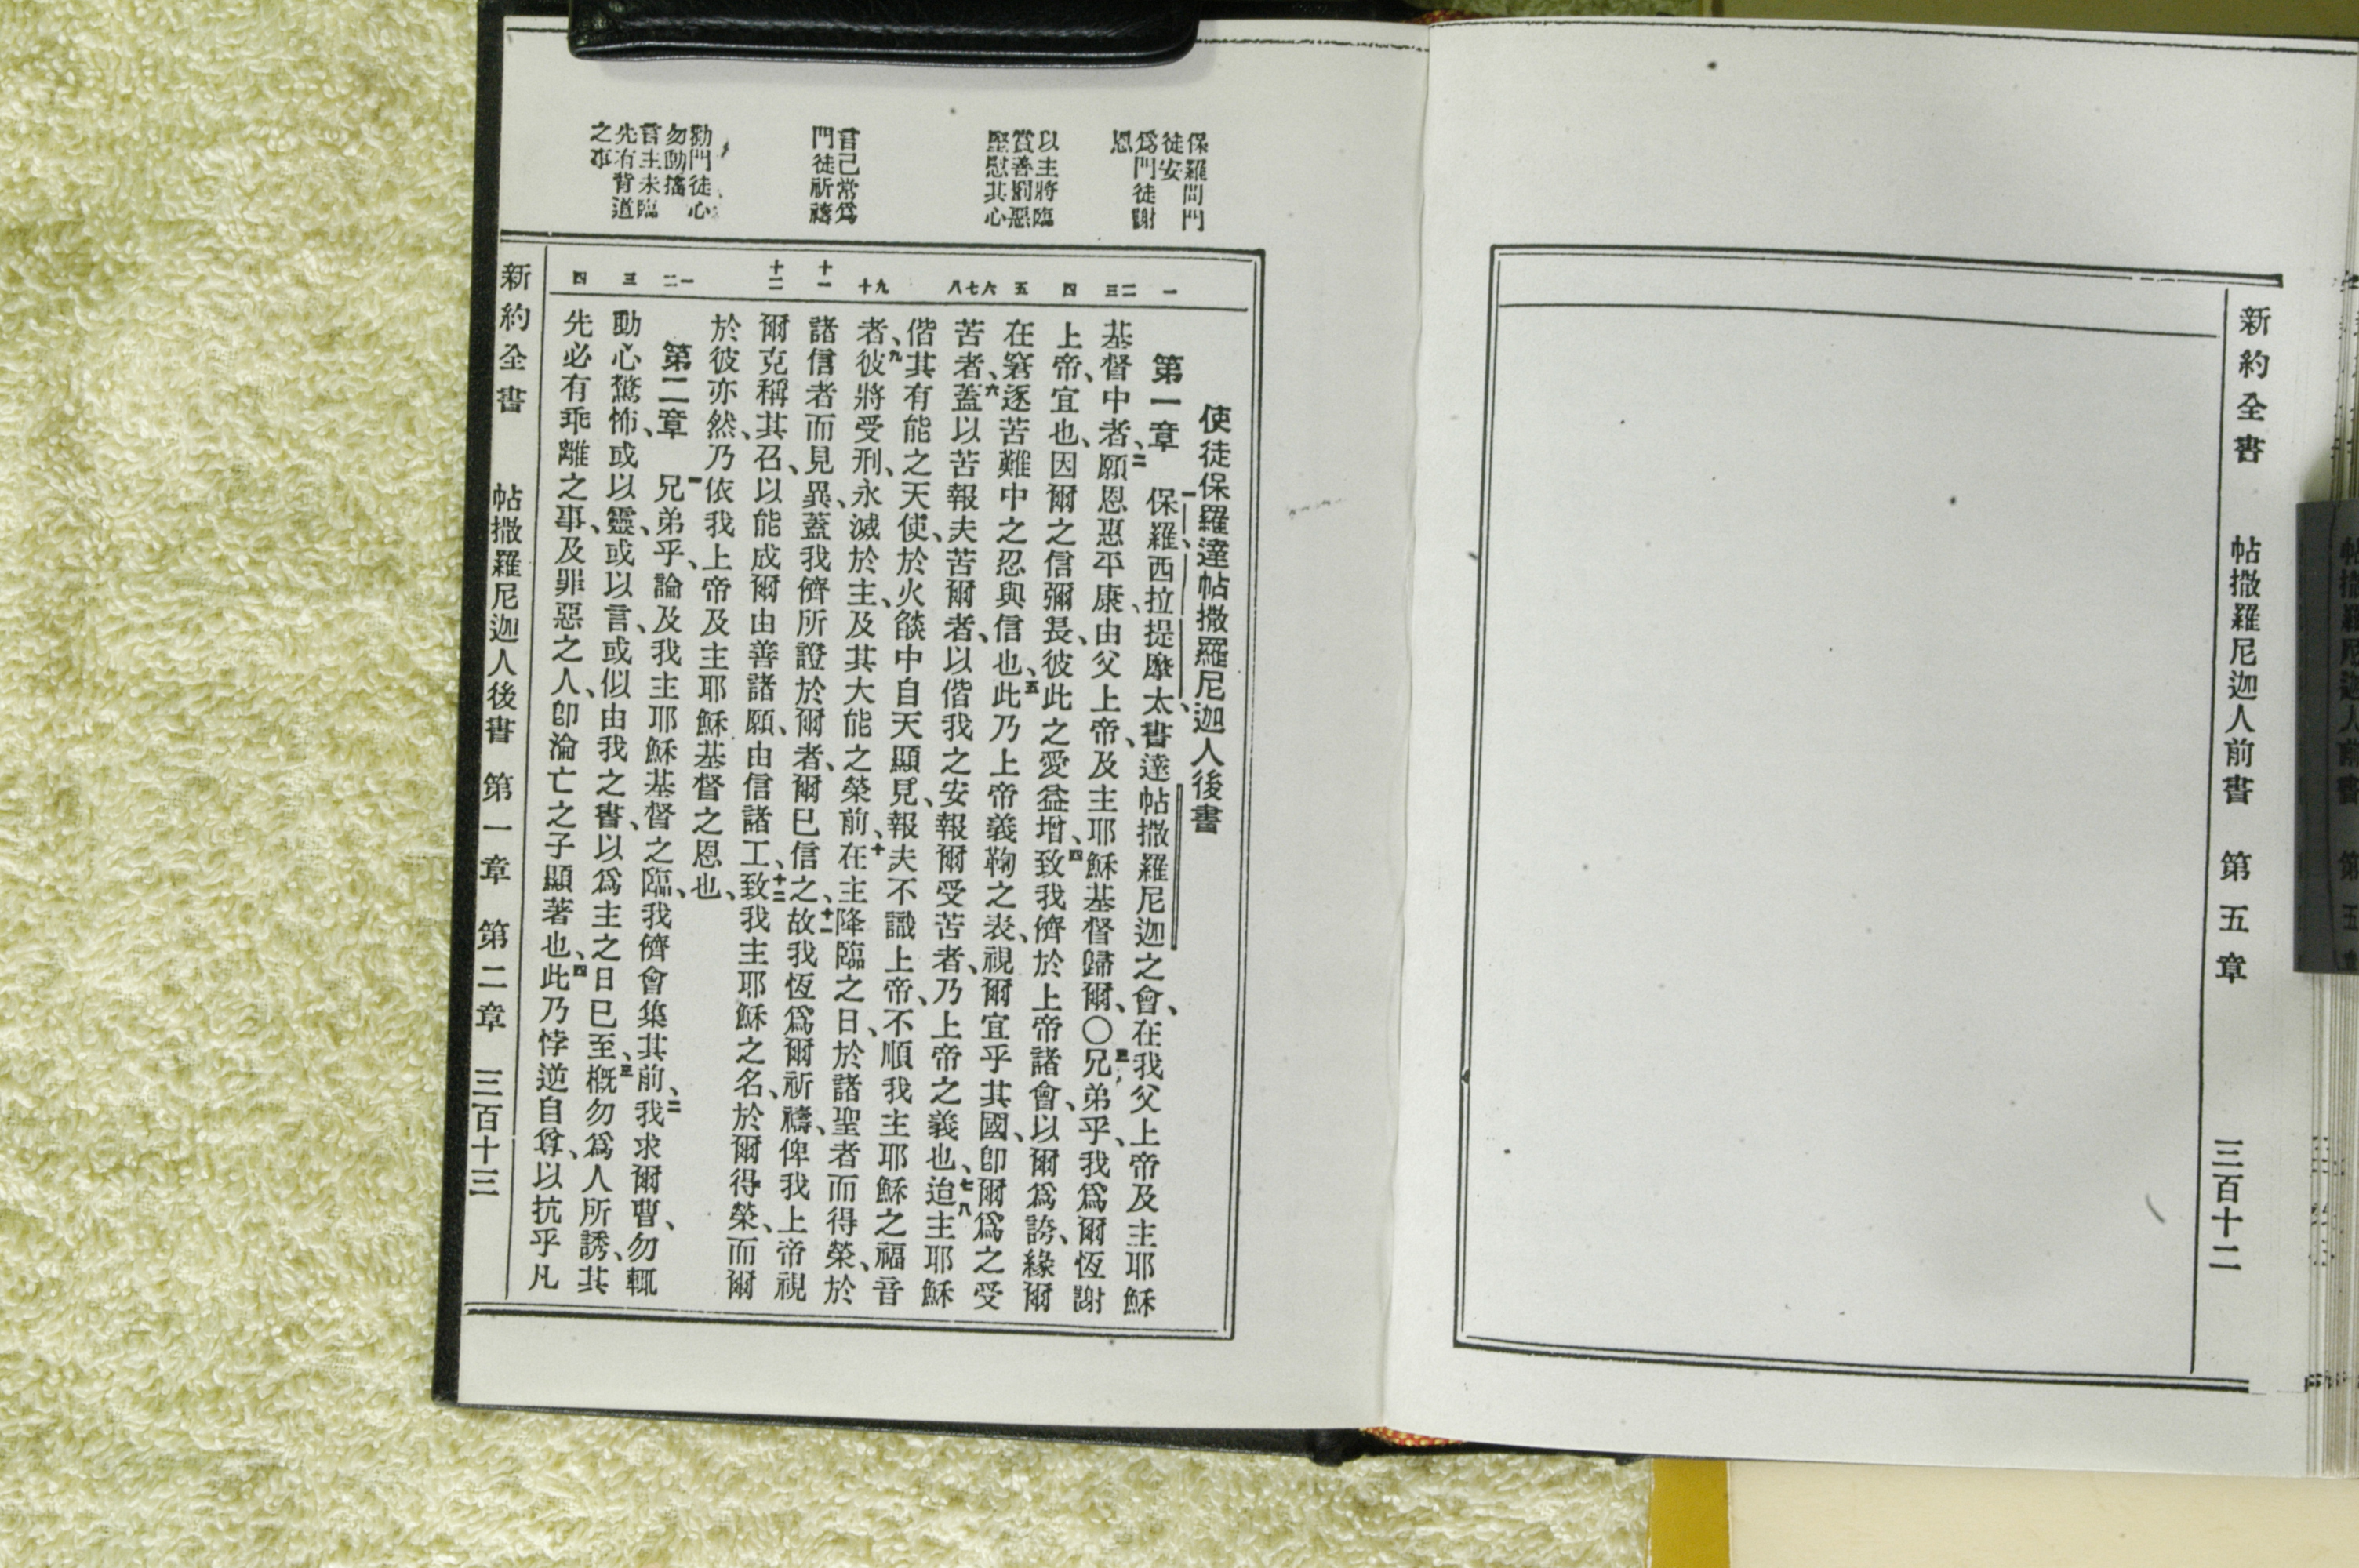 新約全書 帖撒羅尼迦人前書 第五章 三百十二
保羅問門
徒安
爲門徒謝
恩
以主將臨
賞善罰惡
堅慰其心
言己常爲
門徒祈禱
勸門徒心
勿動搖
言主未臨
先有背道
之事
一 二 三 四 五 六 七 八 九 十 十一 十二 一 二 三 四
使徒保羅達帖撒羅尼迦人後書
第一章 一保羅、西拉、提摩太、書達帖撒羅尼迦之會、在我父上帝及主耶穌
基督中者、二願恩惠平康、由父上帝、及主耶穌基督歸爾、〇三兄弟乎、我爲爾恆謝
上帝、宜也、因爾之信彌長、彼此之愛益增、四致我儕於上帝諸會、以爾爲誇、緣爾
在窘逐苦難中之忍與信也、五此乃上帝義鞫之表、視爾宜乎其國、卽爾爲之受
苦者、六蓋以苦報夫苦爾者、以偕我之安報爾受苦者、乃上帝之義也、七八迨主耶穌
偕其有能之天使、於火燄中自天顯見、報夫不識上帝、不順我主耶穌之福音
者、九彼將受刑、永滅於主、及其大能之榮前、十在主降臨之日、於諸聖者而得榮、於
諸信者而見異、蓋我儕所證於爾者、爾已信之、十一故我恆爲爾祈禱、俾我上帝視
爾克稱其召、以能成爾由善諸願、由信諸工、十二致我主耶穌之名、於爾得榮、而爾
於彼亦然、乃依我上帝及主耶穌基督之恩也、
第二章 一兄弟乎、論及我主耶穌基督之臨、我儕會集其前、二我求爾曹、勿輒
動心驚怖、或以靈、或以言、或似由我之書、以爲主之日已至、三槪勿爲人所誘、其
先必有乖離之事、及罪惡之人、卽淪亡之子顯著也、四此乃悖逆自尊、以抗乎凡
新約全書 帖撒羅尼迦人後書 第一章 第二章 三百十三